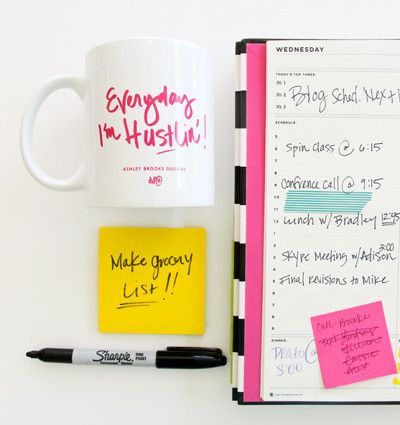 Everyday
I'm Hustlin'!
ASHLEY BROOKE DESIGNS
Make grocery
LIST!!
Sharpie
FINE POINT
Permanent Marker
WEDNESDAY
TODAY'S TOP THREE:
№ 1
№ 2 Blog Sched. Next
№ 3
SCHEDULE:
5
6 Spin class @ 6:15
7
8
9 Confrence call @ 9:15
10
11
12 Lunch w/ Bradley 12:45
1
2
3 Skype Meeting w/Adison 3:00
4 Final revisions to Mike
5
Call Brooke
Jillian
Cassie
DINNER:
8:00